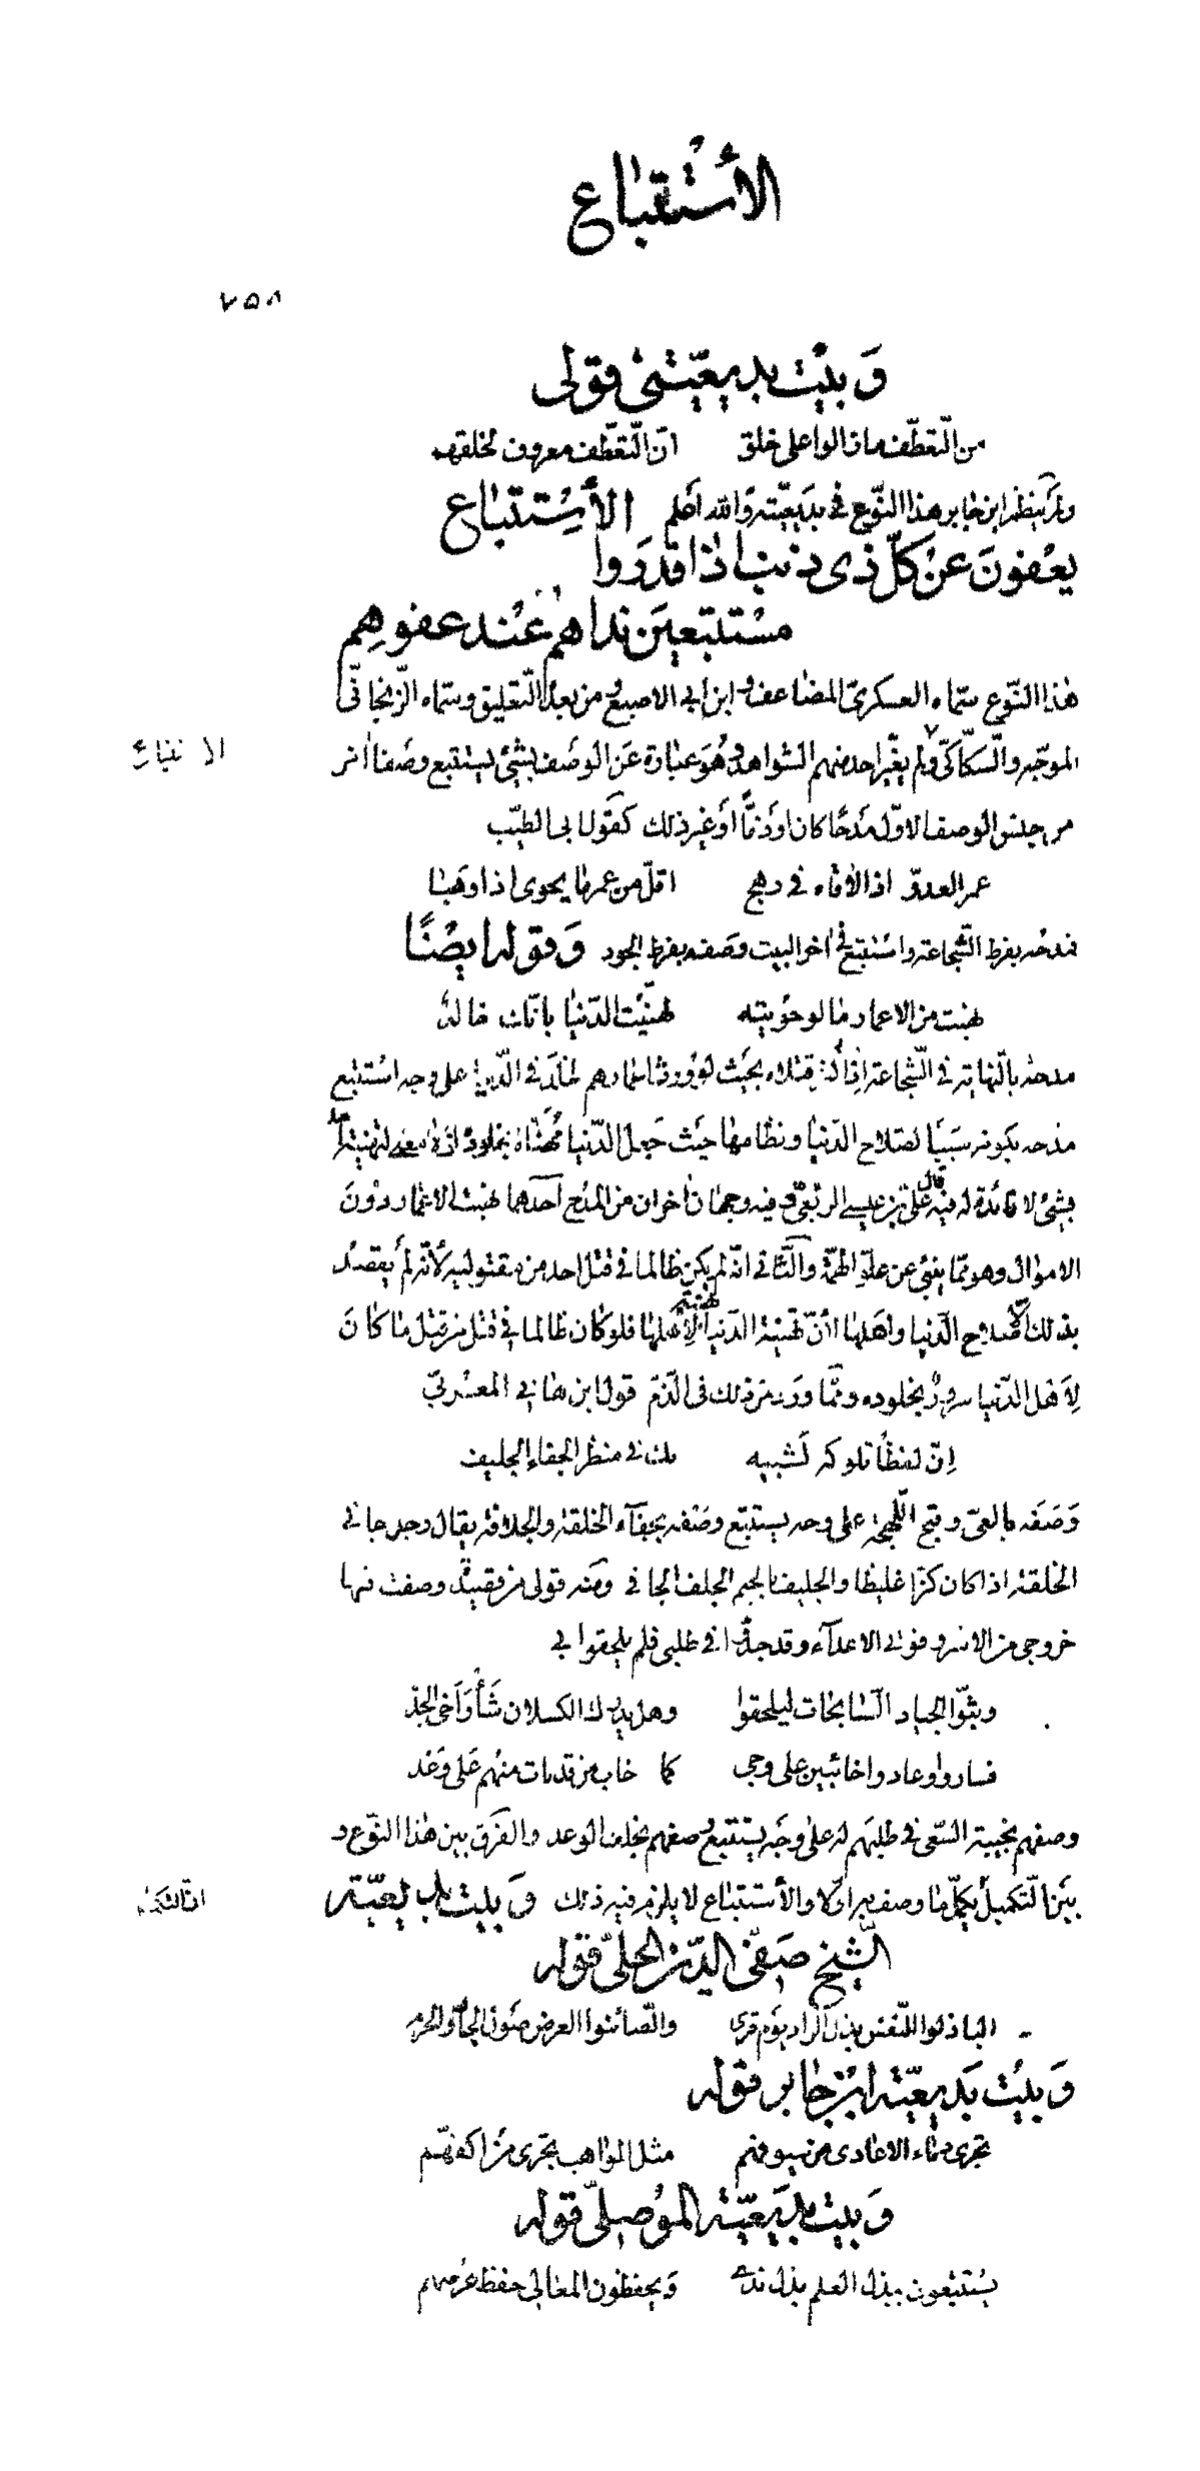 الأستتباع
٧٥٨
وَبيْت بديعيّتى قولى
من التّعطّف ما زالوا على خلق انّ التّعطّف معروف لخلقهم
ولم ينظم ابن جابر هذا النّوع فى بديعيّته وَالله اَعلم الأسْتتباع
يعْفونَ عنْ كلّ ذى ذنب اذا قدَروا
مسْتتبعيَن نداهم عنْد عفوهِم
هٰذا النّوع سمّاه العسكرىّ المضاعف وابن ابى الاصبع ومن بعده التّعليق وسمّاه الزّنجانىّ
الموجّه والسّكاكىّ ولم يغيّر احد منهم الشواهد وهُوَ عبارة عَن الوصَف بشئ يستتبع وصَفا اٰخر
الاستتباع
من جنس الوصف الاوّل مَدحًا كان اوذمًّا أوغير ذلك كقَول ابى الطيّب
عمر العدوّ اذا لاقاه فى رهج اقلّ من عمر ما يحوى اذا وهَبا
فمدحْه بفرط الشّجاعة واستتبع فى اٰخر البيت وصَفه بفرط الجود وَقوله ايضْنًا
نهبت من الاعمار ما لو حويته لهنّيَت الدّنيا بانّك خالدُ
مدحَه بالنّهاية فى الشّجاعة اذا كثر قتلاه بحيَث لو ورث اعمارهم لخلد فى الدّنيا على وجه استتبع
مدحه بكونه سَببًا لصَلاح الدّنيا ونظامها حيَث جَعل الدّنيا مُهنّاة بخلوده اذ لا معنى لتهنئة احد
بشئ لا فائدة له فيه قال علىّ بن عيسى الربعىّ وفيه وجهان اٰخران من المدح اَحدهما نهبت الاعمار دوُنَ
الاموال وهو ممّا ينبئ عن علوّ الهمّة والثّانى انّه لم يكن ظالما فى قتل احد من مقتوليه لأنّه لم يقصُد
بذلك الّا صلاح الدّنيا واهَلها لأنّ تهنية الدّنيا تهنية لأهلها فلو كان ظالما فى قتل من قتل ما كانَ
لِاَهل الدّنيا سرورٌ بخلوده وممّا ورَد من ذلك فى الذّمّ قول ابن هانى المغربىّ
اِنّ لفظًا تلوكه لَشبيه بك فى منظر الجفاء الجليف
وَصَفَه بالعىّ وقبح اللّهجة على وجه يستتبع وصَفه بجفاۤء الخلقة والجلافة يقال رجل جافى
الخلقة اذا كان كزّا غليظا والجليف بالجيم الجلف الجافى ومَنه قولى من قصيدة وصفت فيها
خروجى من الاسر وفوتى الاعداۤء وقد جدّوا فى طلبى فلم يلحقوا بى
وبثّوا الجياد السّابحات ليلحقوا وهل يدرك الكسلان شَأْوَ اَخى الجدّ
فساروا وعادوا خائبين على وجى كما خاب من قد بات منهم عَلى وَعْد
وصفهم بخيبة السّعى فى طلبهم له على وجَه يستتبع وصفهم بخلف الوعد والفرَق بين هٰذا النّوع و
بَين التّكميل انّ التّكميل يكمّل ما وصف به اوّلا والأستتباع لا يلزم فيه ذلك وَبيت بديعيّة
انّ التّكميل
الشّيخ صَفىّ الدّين الحلىّ قوله
الباذلوا النّفس بذل الزاد يَوم قرى والصّائنوا العرض صَون الجار والحرم
وَبيُت بَديعيّة ابن جابر قوله
تجرى دماء الاعادى من سيوفهم مثل المواهب تجرى من اكفّهم
وَبيت بديَعيّة الموُصلىّ قوله
يستتبعون ببذل العلم بذل ندى وَيحفظون المعالى حفظ عرضهم